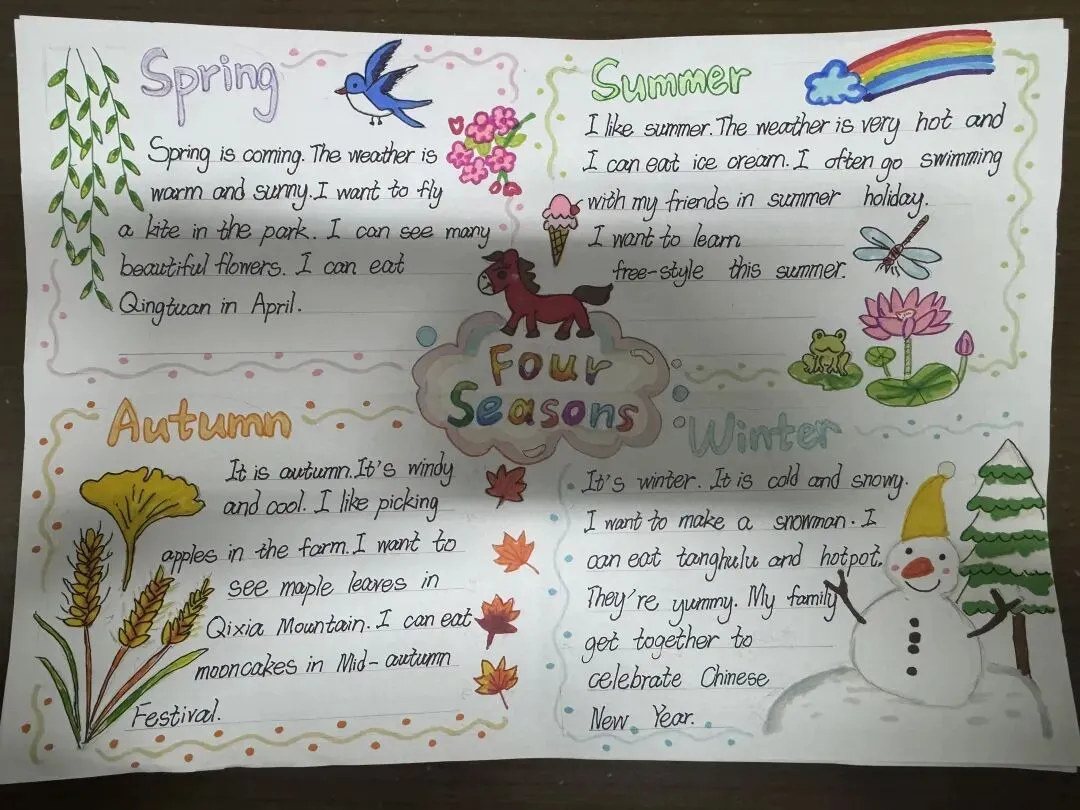 Spring
Spring is coming. The weather is
warm and sunny. I want to fly
a kite in the park. I can see many
beautiful flowers. I can eat
Qingtuan in April.
Summer
I like summer. The weather is very hot and
I can eat ice cream. I often go swimming
with my friends in summer holiday.
I want to learn
free-style this summer.
Four
Seasons
Autumn
It is autumn. It's windy
and cool. I like picking
apples in the farm. I want to
see maple leaves in
Qixia Mountain. I can eat
mooncakes in Mid-autumn
Festival.
Winter
It's winter. It is cold and snowy.
I want to make a snowman. I
can eat tanghulu and hotpot.
They're yummy. My family
get together to
celebrate Chinese
New Year.